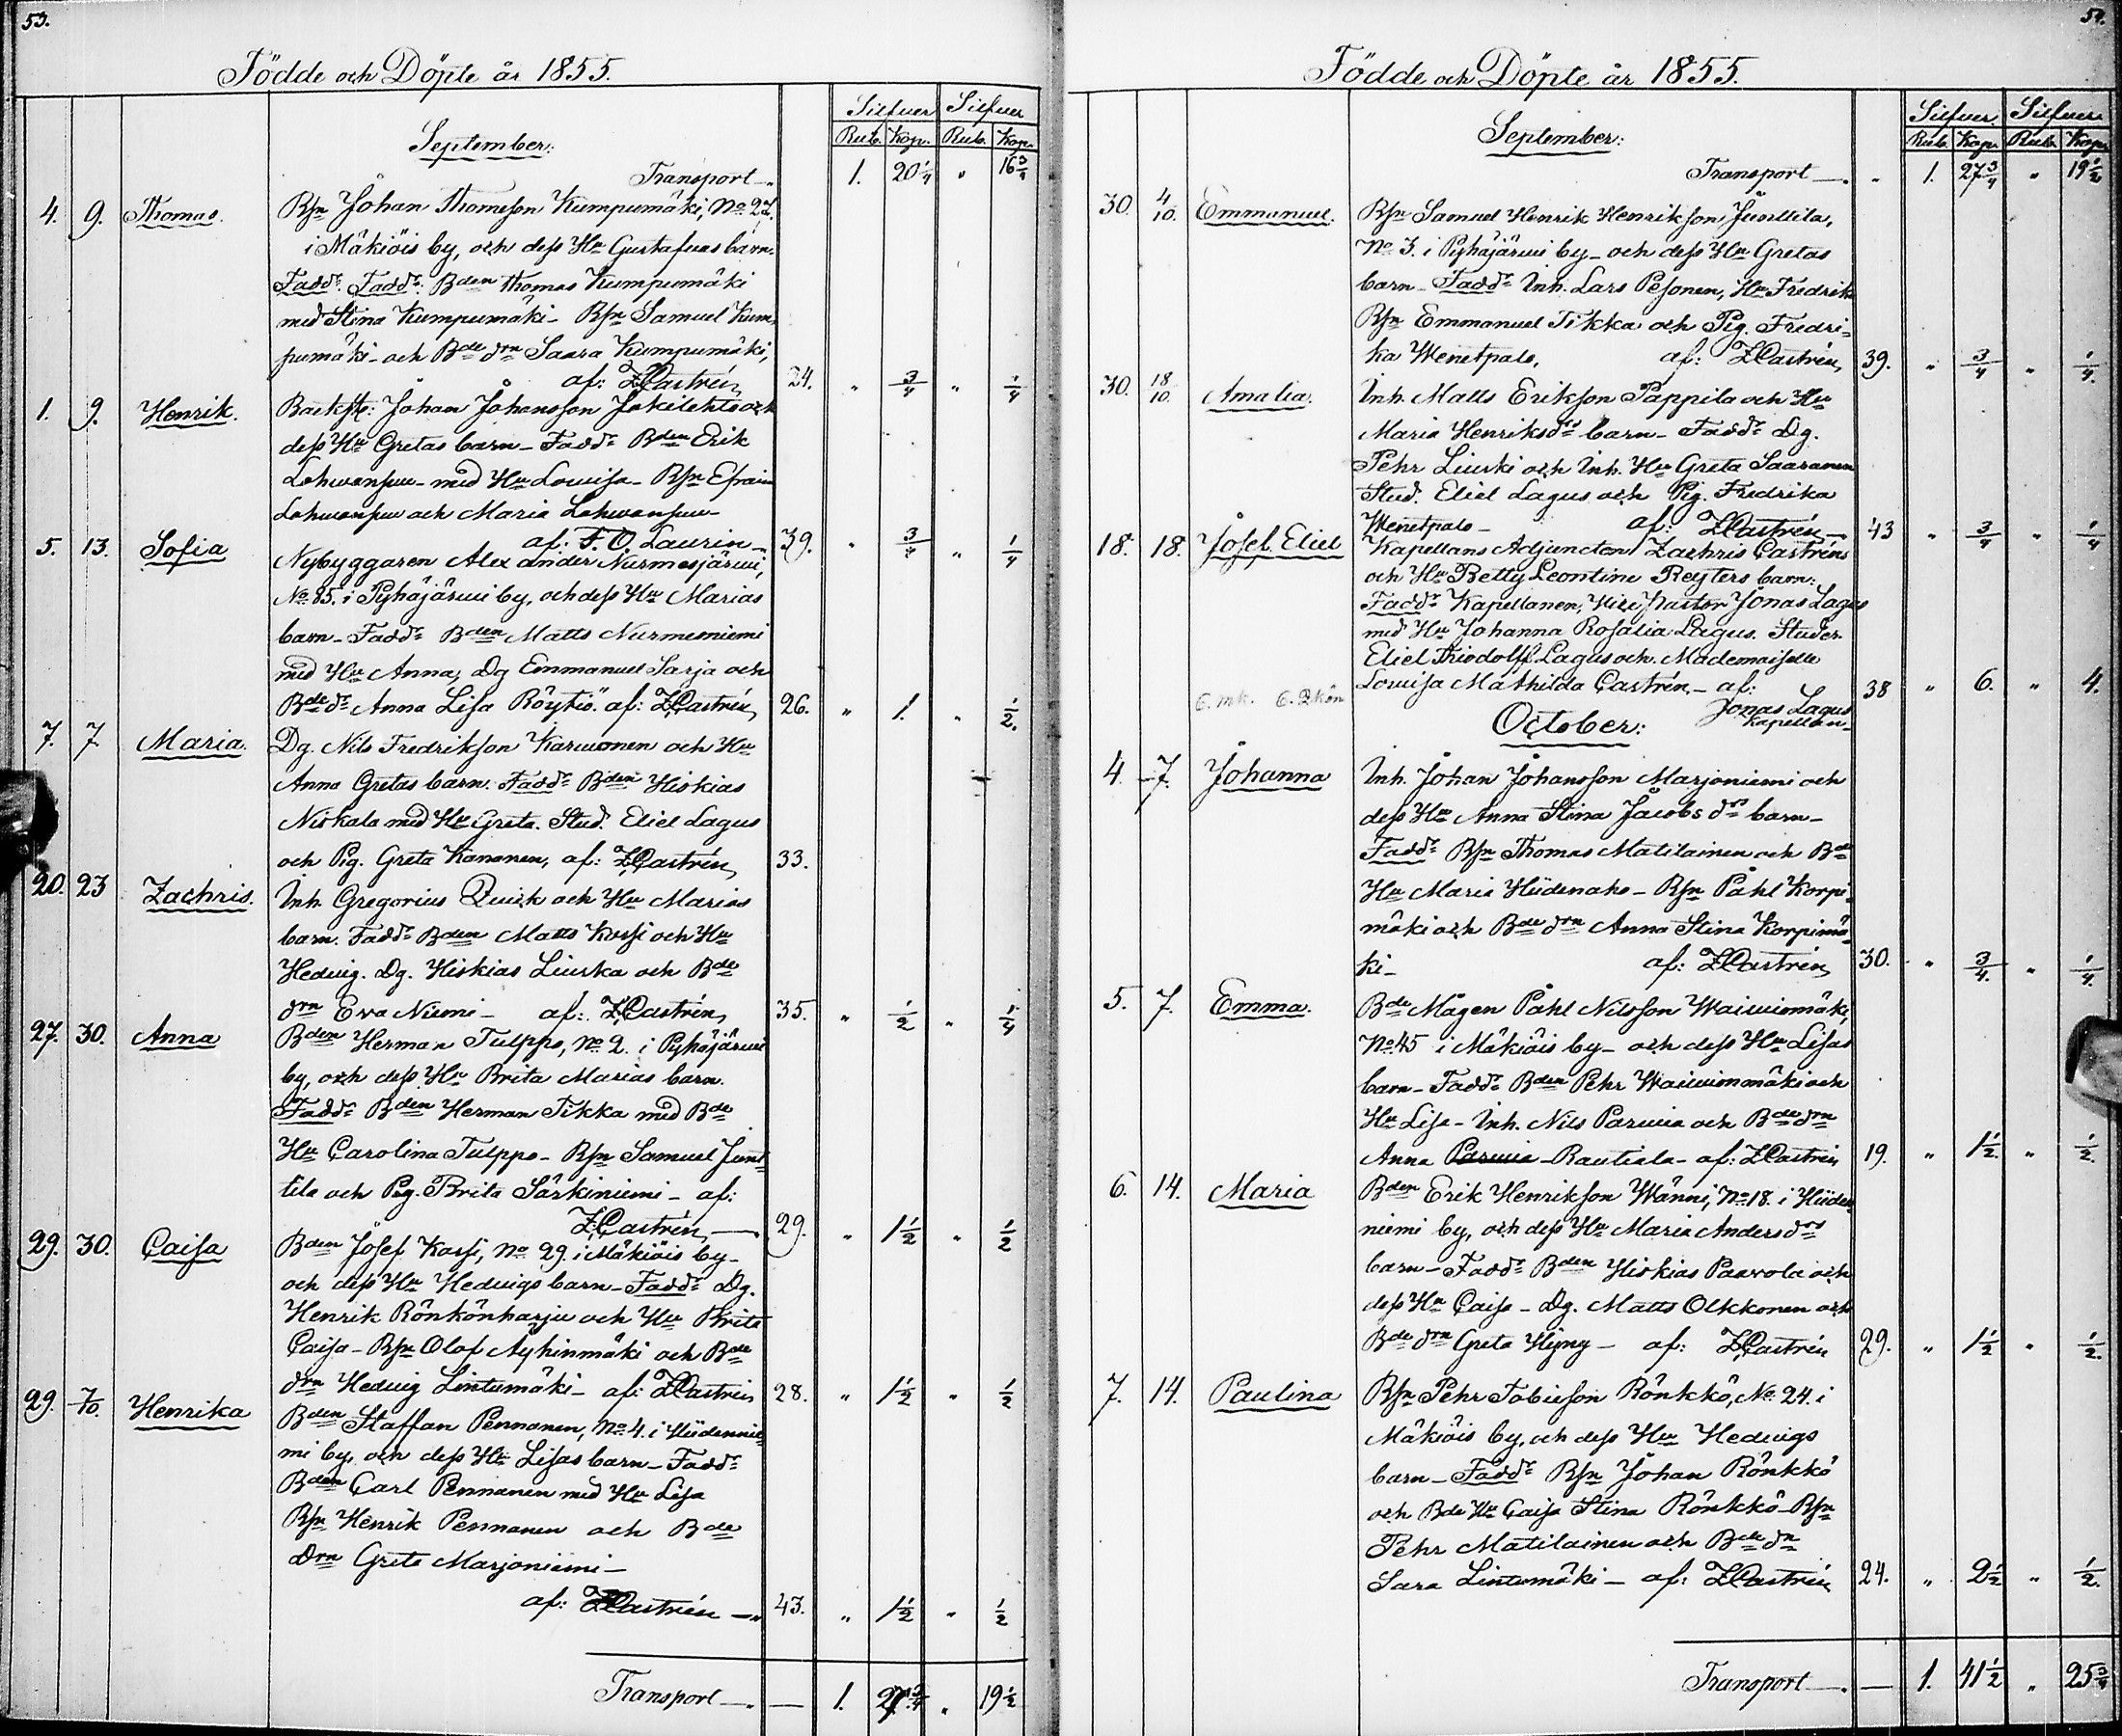 53.
Födde och Döpte år 1855.
Silfver Silfver
Rub. Kop. Rub. Kop.
September:
Transport — 1. 20 1/4 " 16 3/4
4. 9. Thomas. Bsn Johan Thomeson Kumpumäki, No 27.
i Mäkiöis by, och dess Hu Gustafvas barn.
Fadd: Fadd: Bden Thomas Kumpumäki
med Stina Kumpumäki – Bsn Samuel Kum-
pumäki – och Bde drn Saara Kumpumäki,
af: ZCastrén, 24. " 3/4 " 1/4
1. 9. Henrik. Johan Johansson Jokilehto och
dess Hu Gretas barn – Fadd: Bden Erik
med Hu Lovisa – Bsn Efraim
och Maria
af: F. O. Laurin – 39. " 3/4 " 1/4
5. 13. Sofia Nybyggaren Alexander Nurmesjärvi,
No 85. i Pyhäjärvi by, och dess Hu Marias
barn – Fadd: Bden Matts Nurmesniemi
med Hu Anna, Dg Emmanuel Sarja och
Bde dr Anna Lisa Röytiö. af: ZCastrén, 26. " 1. " 1/2.
7. 7. Maria. Dg. Nils Fredrikson Karvonen och Hu
Anna Gretas barn. Fadd: Bden Hiskias
Niskala med Hu Greta. Stud. Eliel Lagus
och Pig. Greta Kananen, af: ZCastrén, 33.
20. 23 Zachris. Inh. Gregorius Quick och Hu Marias
barn. Fadd: Bden Matts Kossi och Hu
Hedvig. Dg. Hiskias Liuska och Bde
drn Eva Niemi – af: ZCastrén, 35. " 1/2 " 1/4
27. 30. Anna Bden Herman Tulppo, No 2. i Pyhäjärvi
by, och dess Hu Brita Marias barn.
Fadd: Bden Herman Tikka med Bde
Hu Carolina Tulppo – Bsn Samuel Junt-
tila och Pig. Brita Särkiniemi – af:
ZCastrén, — 29. " 1 1/2 " 1/2
29. 30. Caisa Bden Josef Kossi, No 29. i Mäkiöis by –
och dess Hu Hedvigs barn – Fadd: Dg.
Henrik Rönkönharju och Hu Brita
Caisa – Bsn Olof Äyhinmäki och Bde
drn Hedvig Lintumäki – af: ZCastrén 28. " 1 1/2 " 1/2
29. 7/10. Henrika Bden Staffan Pennanen, No 4. i Hiidennie-
mi by, och dess Hu Lisas barn – Fadd:
Bden Carl Pennanen med Hu Lisa
Bsn Henrik Pennanen och Bde
Drn Greta Marjoniemi –
af: ZCastrén — 43. " 1 1/2 " 1/2
Transport — 1. 27 3/4 " 19 1/2
Födde och Döpte år 1855.
Silfver. Silfver
Rub. Kop. Rub. Kop.
September:
Transport — " 1. 27 3/4 " 19 1/2
30. 4/10. Emmanuel. Bsn Samuel Henrik Henrikson Junttila,
No 3. i Pyhäjärvi by – och dess Hu Gretas
barn – Fadd: Inh. Lars Pesonen, Hu Fredrik
Bsn Emmanuel Tikka och Pig. Fredri-
ka Wenetpalo, af: ZCastrén, 39. " 3/4 " 1/4.
30. 18/10. Amalia. Inh. Matts Erikson Pappila och Hu
Maria Henriksdrs barn – Fadd: Dg.
Pehr Liuski och Inh. Hu Greta Saaranen
Stud. Eliel Lagus och Pig. Fredrika
Wenetpalo – af: ZCastrén – 43 " 3/4 " 1/4
18. 18. Josef Eliel Kapellans Adjuncten Zachris Castréns
och Hu Betty Leontine Reyters barn:
Fadd: Kapellanen, Vice Pastor Jonas Lagus
med Hu Johanna Rosalia Lagus. Studer.
Eliel Thiodolff Lagus och Mademoiselle
Lovisa Mathilda Castrén, – af: 38 " 6. " 4.
Jonas Lagus
Kapellan –
6. mk. 6. Qkön
October:
4. 7. Johanna Inh. Johan Johansson Marjoniemi och
dess Hu Anna Stina Jacobs drs barn –
Fadd: Bsn Thomas Matilainen och Bde
Hu Maria Hiidenaho – Bsn Påhl Korpi-
mäki och Bde drn Anna Stina Korpimä-
ki – af: ZCastrén, 30. " 3/4. " 1/4.
5. 7. Emma. Bde Mågen Påhl Nilsson Waivionmäki,
No 45 i Mäkiöis by – och dess Hu Lisas
barn – Fadd: Bden Pehr Waivionmäki och
Hu Lisa – Inh. Nils Parvia och Bde drn
Anna Parvia Rautiala – af: ZCastrén 19. " 1 1/2. " 1/2.
6. 14. Maria Bden Erik Henrikson Wänni, No 18. i Hiiden
niemi by, och dess Hu Maria Anders drs
barn – Fadd: Bden Hiskias Paavola och
dess Hu Caisa – Dg. Matts Olkkonen och
Bde drn Greta Hyny – af: ZCastrén 29. " 1 1/2 " 1/2.
7. 14. Paulina Bsn Pehr Tobieson Rönkkö, No 24. i
Mäkiöis by, och dess Hu Hedvigs
barn – Fadd: Bsn Johan Rönkkö
och Bde Hu Caisa Stina Rönkkö – Bsn
Pehr Matilainen och Bde drn
Sara Lintumäki – af: ZCastrén 24. " 2 1/2 " 1/2.
Transport — 1. 41 1/2 " 25 3/4